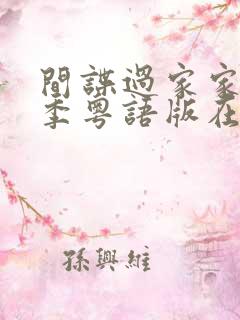 間諜過家家
季粵語版在
孫興維